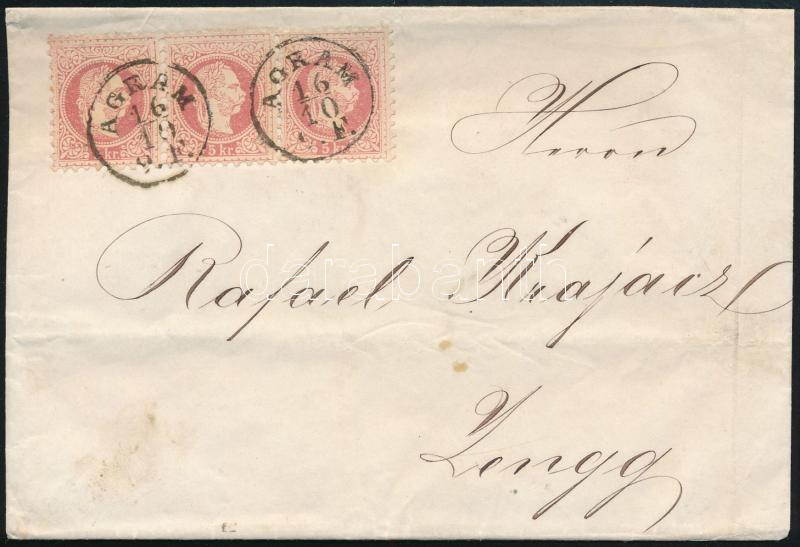 AGRAM
16
10
. F.
AGRAM
16
10
. F.
kr.
5 kr.
5 k
Herrn
Rafael Krajácz
Zengg
darabanth